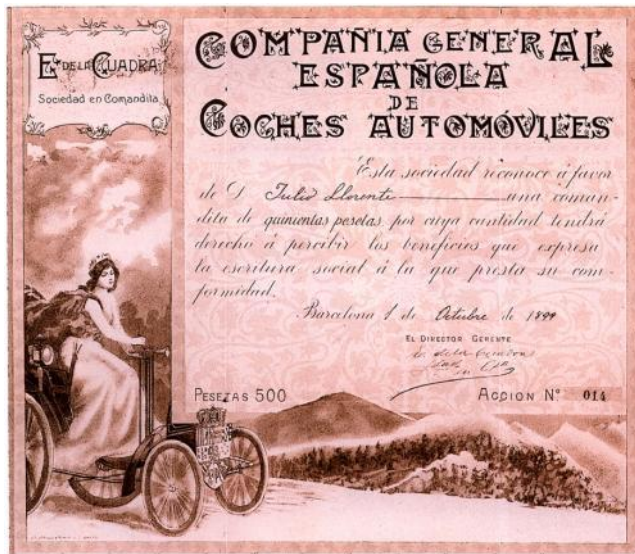 E. DE LA CUADRA
Sociedad en Comandita
COMPAÑIA GENERAL
ESPAÑOLA
DE
COCHES AUTOMÓVILES
Esta sociedad riconoce á favor
de D. Julio Llorente una coman-
dita de quinientas pesetas por cuya cantidad tendrá
derecho á percibir los beneficios que expresa
la escritura social á la que presta su con-
formidad.
Barcelona 1 de Octubre de 1899
EL DIRECTOR GERENTE
PESETAS 500
ACCION Nº 014